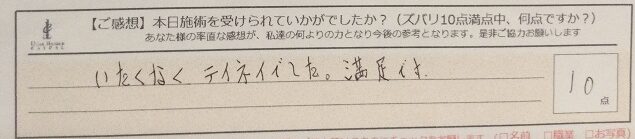 【ご感想】本日施術を受けられていかがでしたか？（ズバリ10点満点中、何点ですか？）
あなた様の率直な感想が、私達の何よりの力となり今後の参考となります。是非ご協力お願いします
いたくなく テイネイでした。満足です.
10
点
お願いします（□名前 □職業 □お写真）